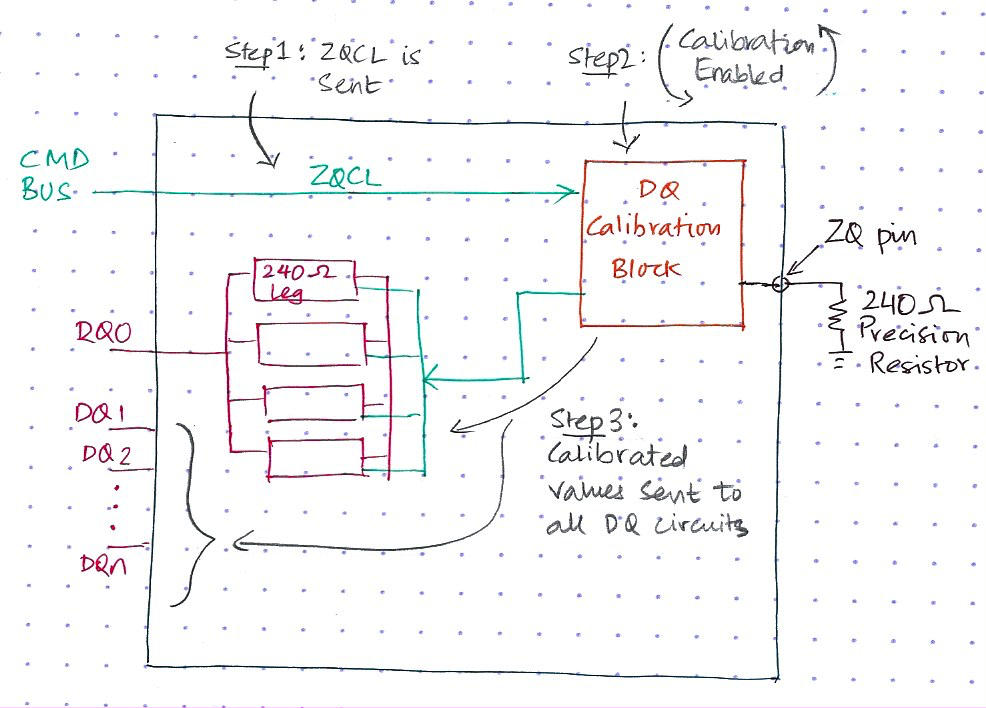 Step1: ZQCL is
Sent
Step2: (Calibration
Enabled)
CMD
BUS
ZQCL
DQ
Calibration
Block
ZQ pin
240Ω
Precision
Resistor
240Ω
Leg
DQ0
DQ1
DQ2
DQn
Step3:
Calibrated
values sent to
all DQ circuits